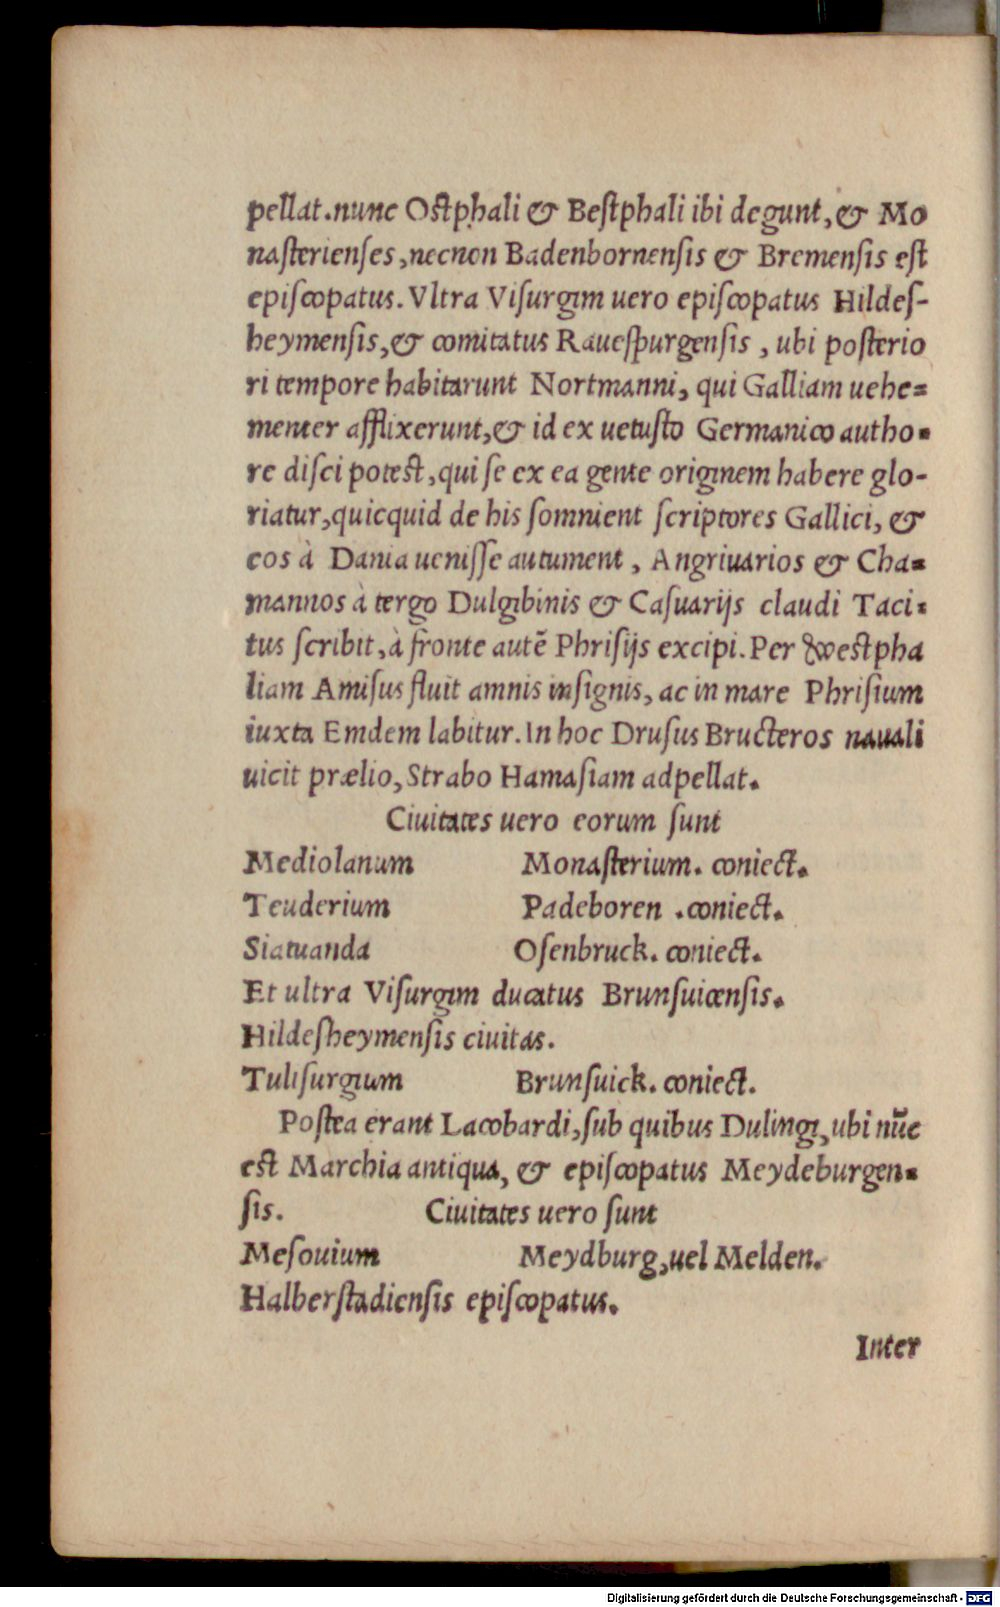 pellat.nunc Ostphali & Bestphali ibi degunt,& Mo
nasterienses,necnon Badenbornensis & Bremensis est
episcopatus. Vltra Visurgim uero episcopatus Hildes-
heymensis,& comitatus Rauespurgensis , ubi posterio
ri tempore habitarunt Nortmanni, qui Galliam uehe-
menter afflixerunt,& id ex uetusto Germanico autho-
re disci potest,qui se ex ea gente originem habere glo-
riatur,quicquid de his somnient scriptores Gallici, &
eos à Dania uenisse autument , Angriuarios & Cha-
mannos à tergo Dulgibinis & Casuarijs claudi Taci-
tus scribit,à fronte autē Phrisijs excipi.Per Westpha
liam Amisus fluit amnis insignis, ac in mare Phrisium
iuxta Emdem labitur.In hoc Drusus Bructeros nauali
uicit prælio,Strabo Hamasiam adpellat.
Ciuitates uero eorum sunt
Mediolanum Monasterium. coniect.
Teuderium Padeboren .coniect.
Siatuanda Osenbruck. coniect.
Et ultra Visurgim ducatus Brunsuicensis.
Hildesheymensis ciuitas.
Tulisurgium Brunsuick. coniect.
Postea erant Lacobardi,sub quibus Dulingi,ubi nūc
est Marchia antiqua, & episcopatus Meydeburgen-
sis. Ciuitates uero sunt
Mesouium Meydburg,uel Melden.
Halberstadiensis episcopatus.
Inter
Digitalisierung gefördert durch die Deutsche Forschungsgemeinschaft - DFG